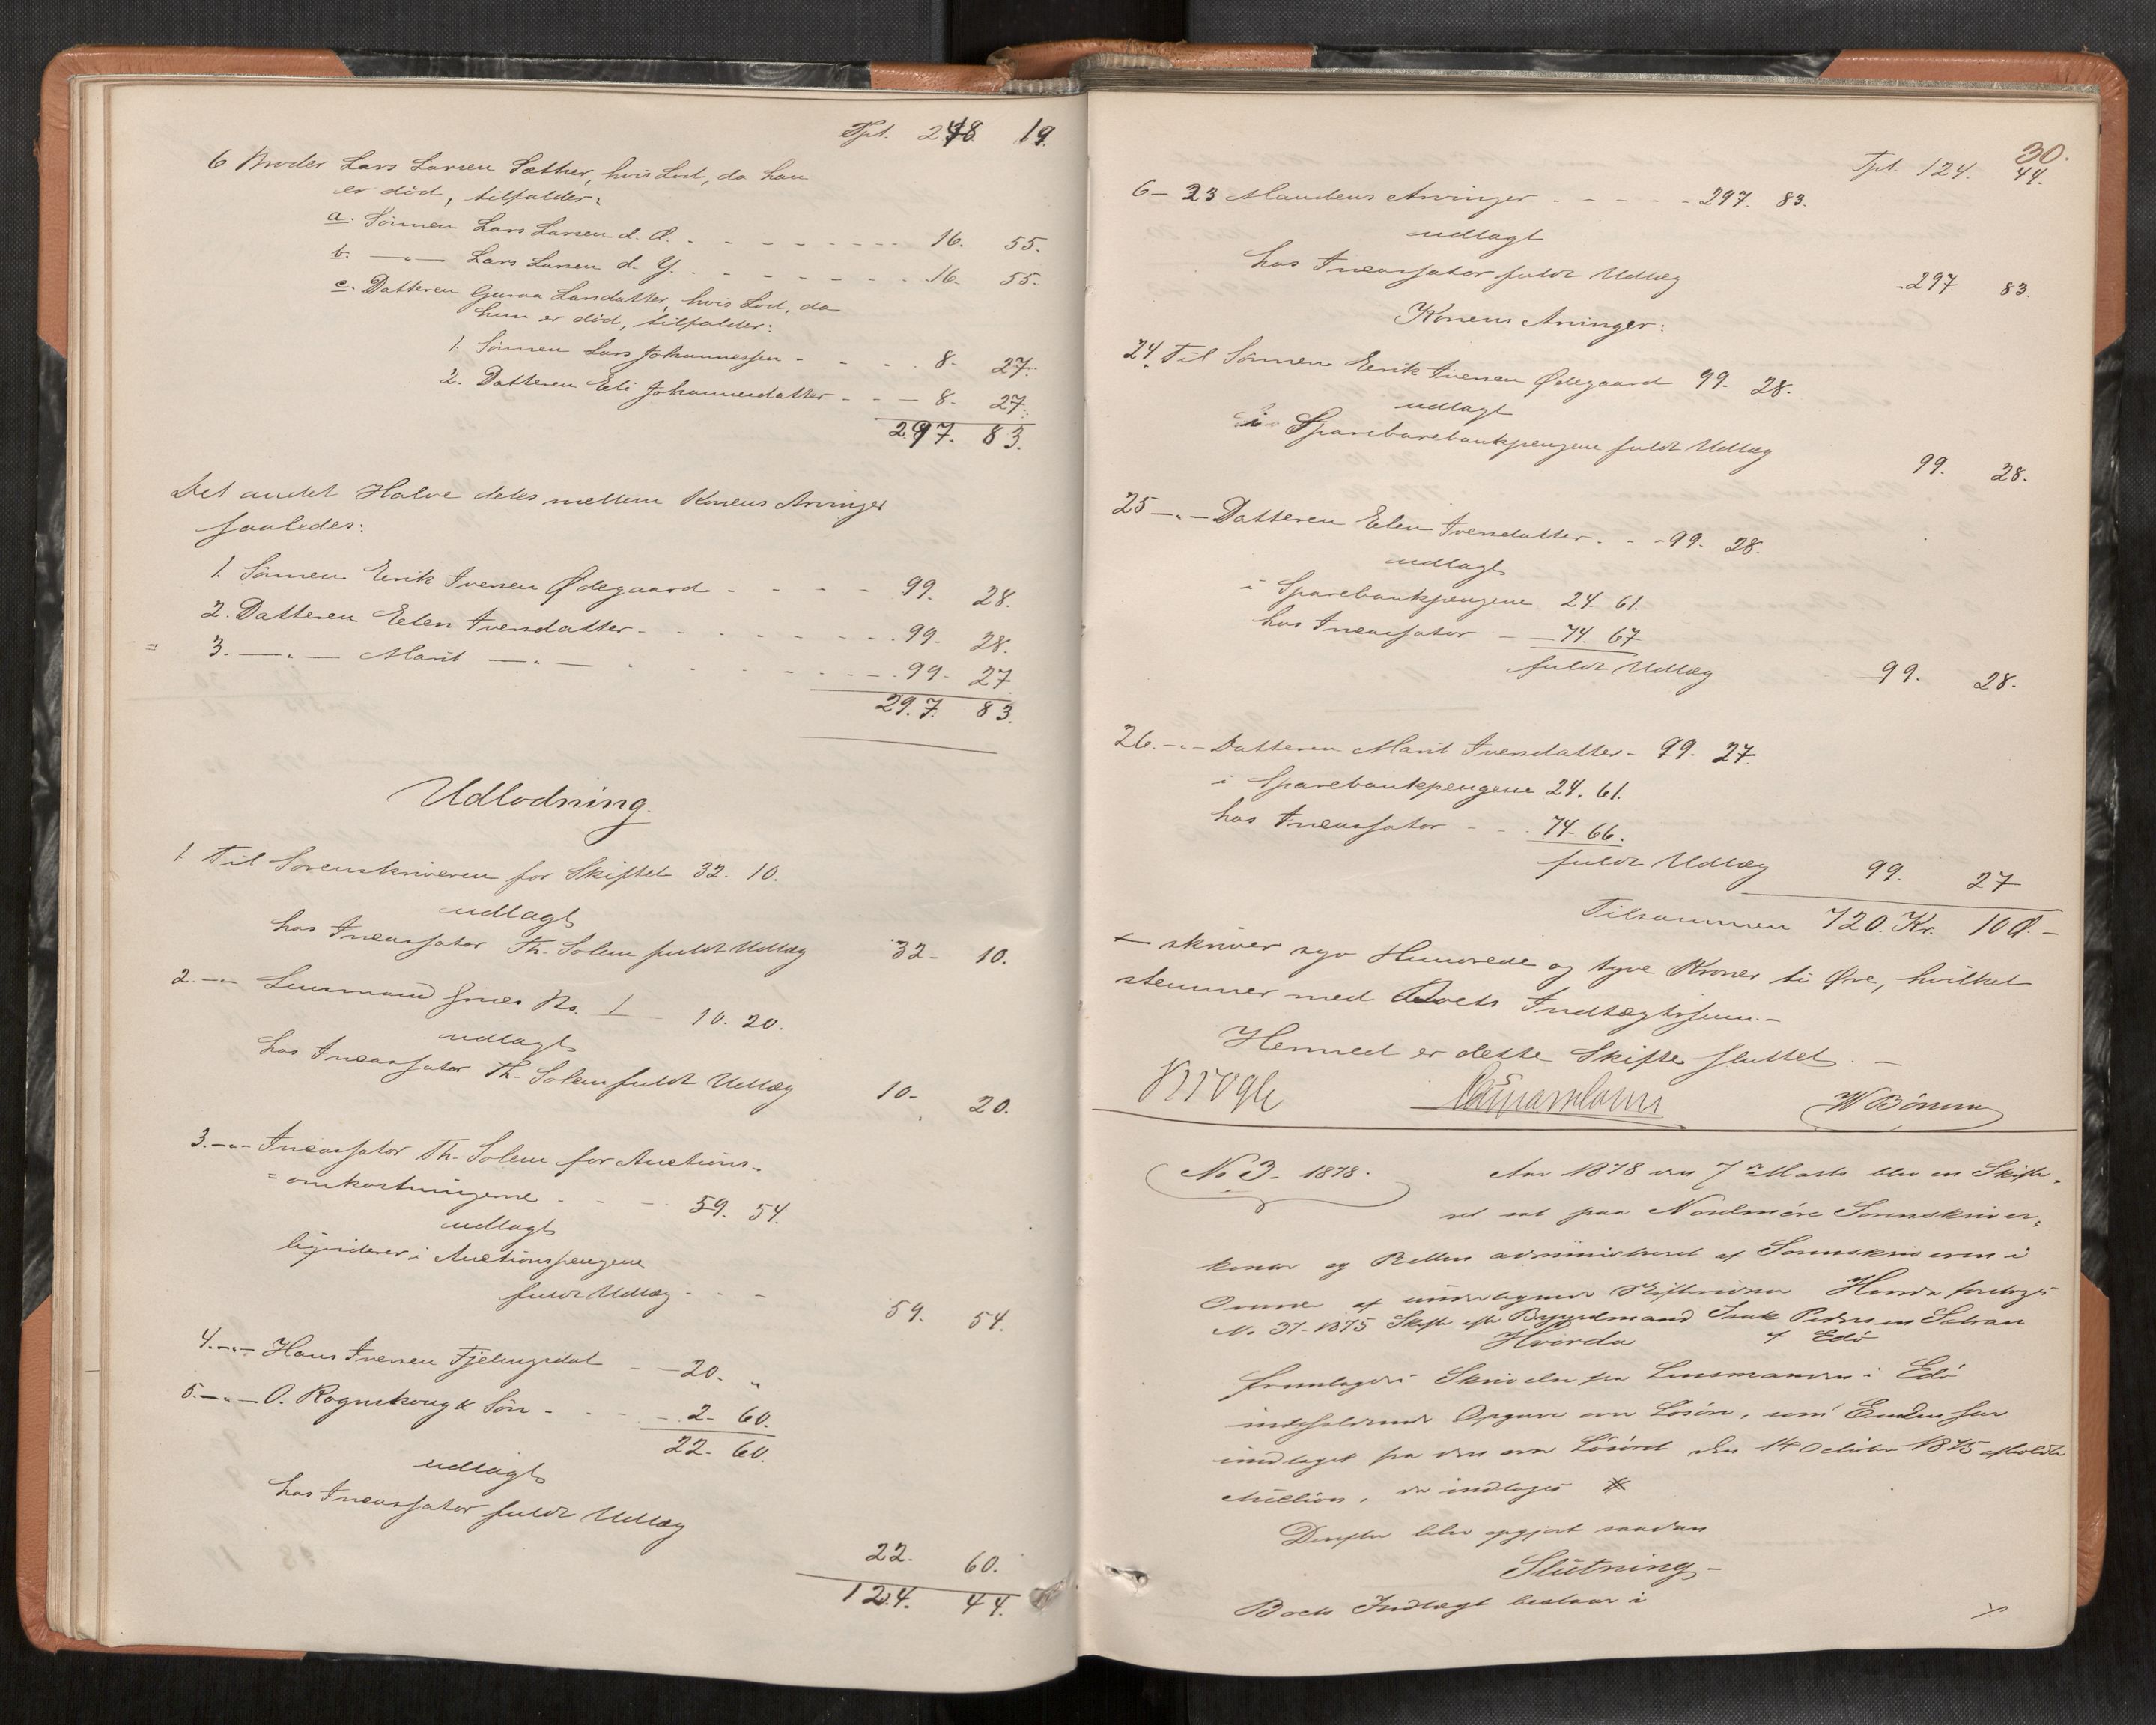 Tpt. 248. 19.
6 Broder Lars Larsen Sæther, hvis Lod, da han
er död, tilfalder:
a. Sönnen Lars Larsen d. Æ. 16. 55.
b. —"— Lars Larsen d. Y. 16. 55.
c. Datteren Guroa Larsdatter, hvis Lod, da
hun er död, tilfalder:
1. Sönnen Lars Johannessen - 8. 27.
2. Datteren Eli Johannesdatter - 8. 27.
297. 83.
Det andet Halve deles mellem Konens Arvinger
saaledes:
1. Sönnen Eerik Iversen Ødegaard 99. 28.
2. Datteren Eelen Iversdatter 99. 28.
3. —"— Marit —"— 99. 27
297. 83.
Udlodning.
1. Til Sorenskriveren for Skiftet 32. 10.
udlagt
hos Incassator Th. Solem fuldt Udlæg 32 - 10.
2. —"— Lensmand 10. 20.
udlagt
hos Incassator Th. Solem fuldt Udlæg 10 - 20.
3. —"— Incassator Th. Solem for Auctions-
=omkostningerne 59. 54.
udlagt
ligviderer i Auctionspengene
fuldt Udlæg 59. 54.
4. —"— Hans Iversen Fjelngsdal 20. "
5. —"— O. Rognskoug & Sön 2. 60.
22. 60.
udlagt
hos Incassator fuldt Udlæg
22. 60.
124. 44.
30.
Tpt. 124. 44.
6 — 23 Mandens Arvinger 297. 83.
udlagt
hos Incassator fuldt Udlæg 297 83.
Konens Arvinger:
24. Til Sönnen Eerik Iversen Ødegaard 99. 28.
udlagt
i Sparebarebankpengene fuldt Udlæg 99. 28.
25 —"— Datteren Elen Iversdatter 99. 28.
udlagt
i Sparebankpengene 24. 61.
hos Incassator 74. 67
fuldt Udlæg 99. 28.
26. —"— Datteren Marit Iversdatter - 99. 27.
i Sparebankpengene 24. 61.
hos Incassator 74. 66.
fuldt Udlæg 99. 27
Tilsammen 720. Kr. 10 Ø. -
skriver syv Hundrede og tyve Kroner ti Øre, hvilket
stemmer med Boets Indtægtssum. -
Hermed er dette Skifte sluttet. -
Krogh W Bönum
No 3 - 1878. Aar 1878 den 7de Marts blev en Skifte-
ret sat paa Nordmöre Sorenskriver-
kontor og Retten administreret af Sorenskriveren i
Overvær af undertegnede Skiftevidner. Hvorda foretoges
No 37 - 1875 Skifte efter Bygselmand Isak Pedersen Solvan
Hvorda af Edö
fremlagdes Skrivelse fra Lensmanden i Edö
indeholdende Opgave over Lösöre, som Enken har
indtaget fra den over Lösöret den 14 October 1875 afholdte
Auction, der indtages
Derefter blev opgjort saadan
Slutning -
Boets Indtægt bestaar i